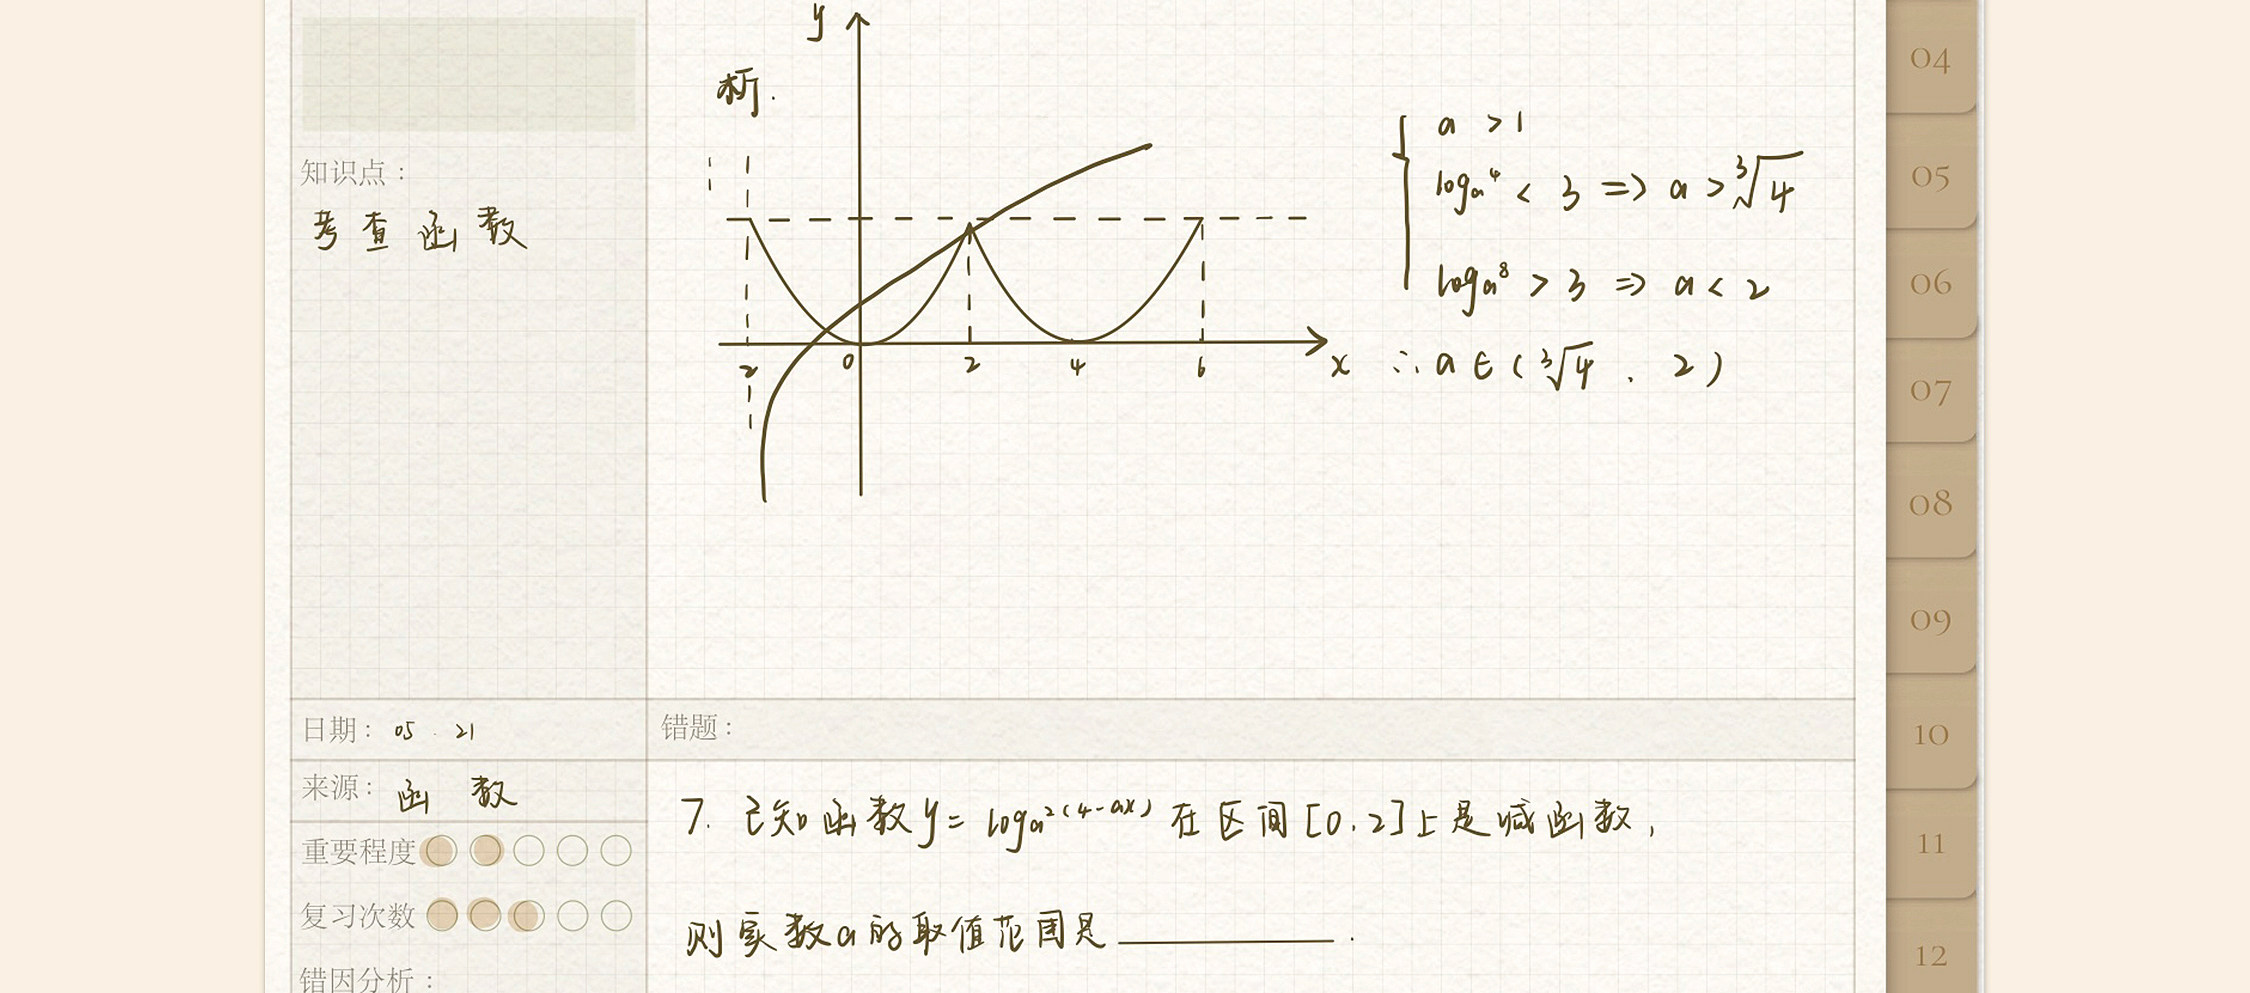 y
析.
知识点：
考查函数
a > 1
logₐ⁴ < 3 => a > ³√4
logₐ⁸ > 3 => a < 2
∴ a ∈ ( ³√4 . 2 )
2 0 2 4 6 x
日期： 05 . 21
错题：
来源： 函数
7. 已知函数 y = logₐ2(4-ax) 在区间 [0.2] 上是减函数,
重要程度
复习次数
则实数a的取值范围是 ________ .
错因分析：
04
05
06
07
08
09
10
11
12